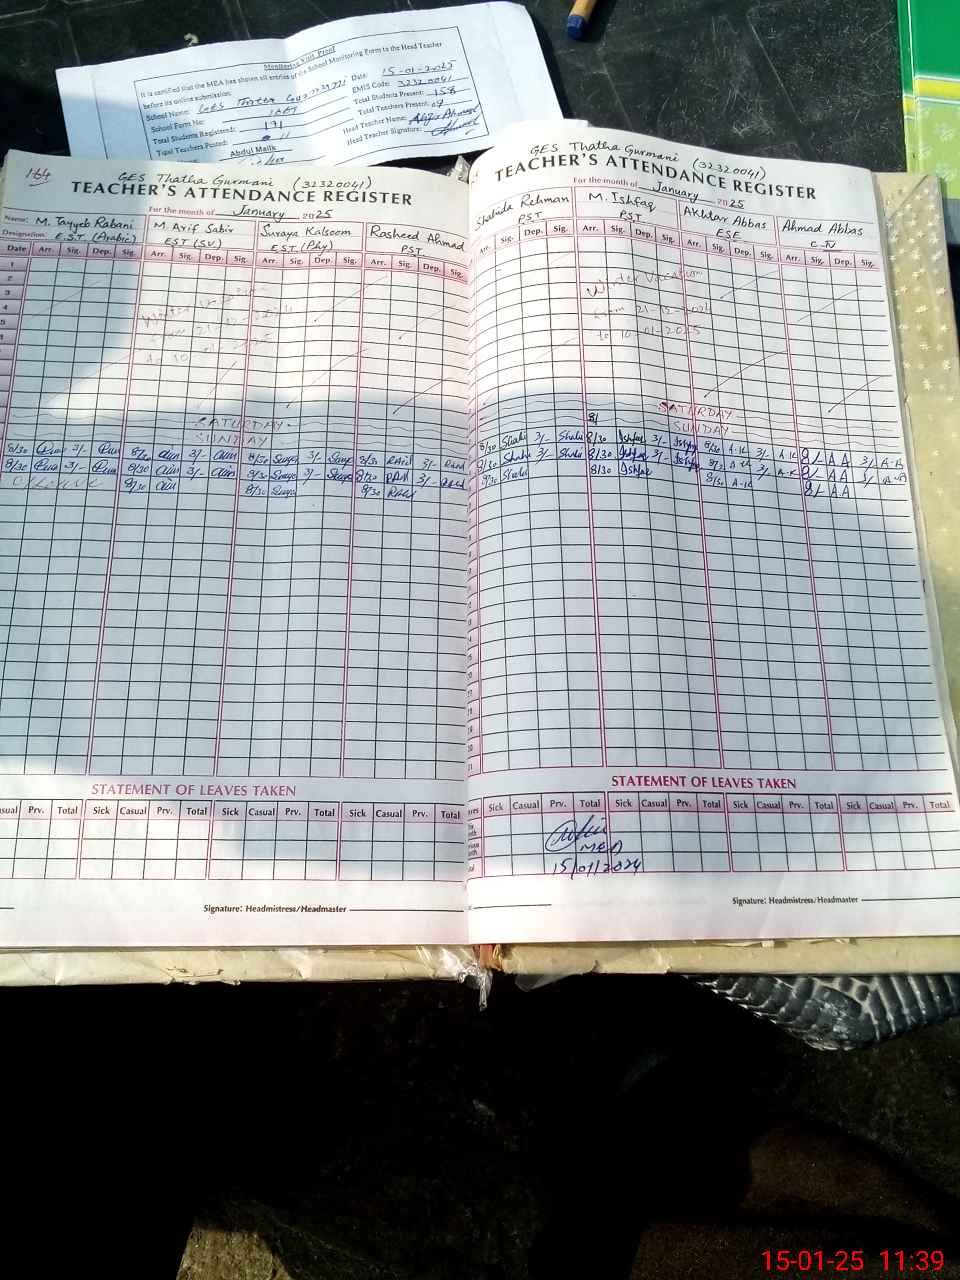 Monitoring Visit Proof
It is certified that the MEA has shown all entries of the School Monitoring Form to the Head Teacher
before its online submission:
Date: 15-01-2025
School Name: GES Thatha
EMIS Code: 32320041
School Form No:
Total Students Present: 158
Total Students Registered: 191
Total Teachers Present: 09
Total Teachers Posted: 11
Head Teacher Name:
Abdul Malik
Head Teacher Signature:
164
GES Thatha Gurmani (32320041)
TEACHER'S ATTENDANCE REGISTER
For the month of January 2025
Name: M. Tayyeb Rabani M. Arif Sabir Suraya Kalsoom Rasheed Ahmad
Designation: E.S.T. (Arabic) EST (SV) E.S.T. (Phy) PST
Date Arr. Sig. Dep. Sig. Arr. Sig. Dep. Sig. Arr. Sig. Dep. Sig. Arr. Sig. Dep. Sig.
1
2
3
4
Winter
from 21-12-2024
to 10-01-2025
SATURDAY
SUNDAY
8/30 3/- 8/30 3/- 8/30 3/- 8/30 3/-
8/30 3/- 8/30 3/- 8/30 3/- 8/30 3/-
8/30 8/30 8/30
STATEMENT OF LEAVES TAKEN
Casual Prv. Total Sick Casual Prv. Total Sick Casual Prv. Total Sick Casual Prv. Total
Signature: Headmistress/Headmaster
GES Thatha Gurmani (32320041)
TEACHER'S ATTENDANCE REGISTER
For the month of January 2025
Shahida Rehman M. Ishfaq Akhtar Abbas Ahmad Abbas
PST PST ESE C.TV
Arr. Sig. Dep. Sig. Arr. Sig. Dep. Sig. Arr. Sig. Dep. Sig. Arr. Sig. Dep. Sig.
Winter Vacation
from 21-12-2024
to 10-01-2025
SATURDAY
SUNDAY
8/30 Shahi 3/- Shahi 8/30 Ishfaq 3/- Ishfaq 8/30 A-K 3/- A-K 8/- A A 3/- A-A
8/30 Shahi 3/- Shahi 8/30 Ishfaq 3/- Ishfaq 8/30 A-K 3/- A-K 8/- A A 3/- A-A
8/30 Shahi 8/30 Ishfaq 8/30 A-K 8/- A A
STATEMENT OF LEAVES TAKEN
Sick Casual Prv. Total Sick Casual Prv. Total Sick Casual Prv. Total Sick Casual Prv. Total
MEA
15/01/2024
Signature: Headmistress/Headmaster
15-01-25 11:39